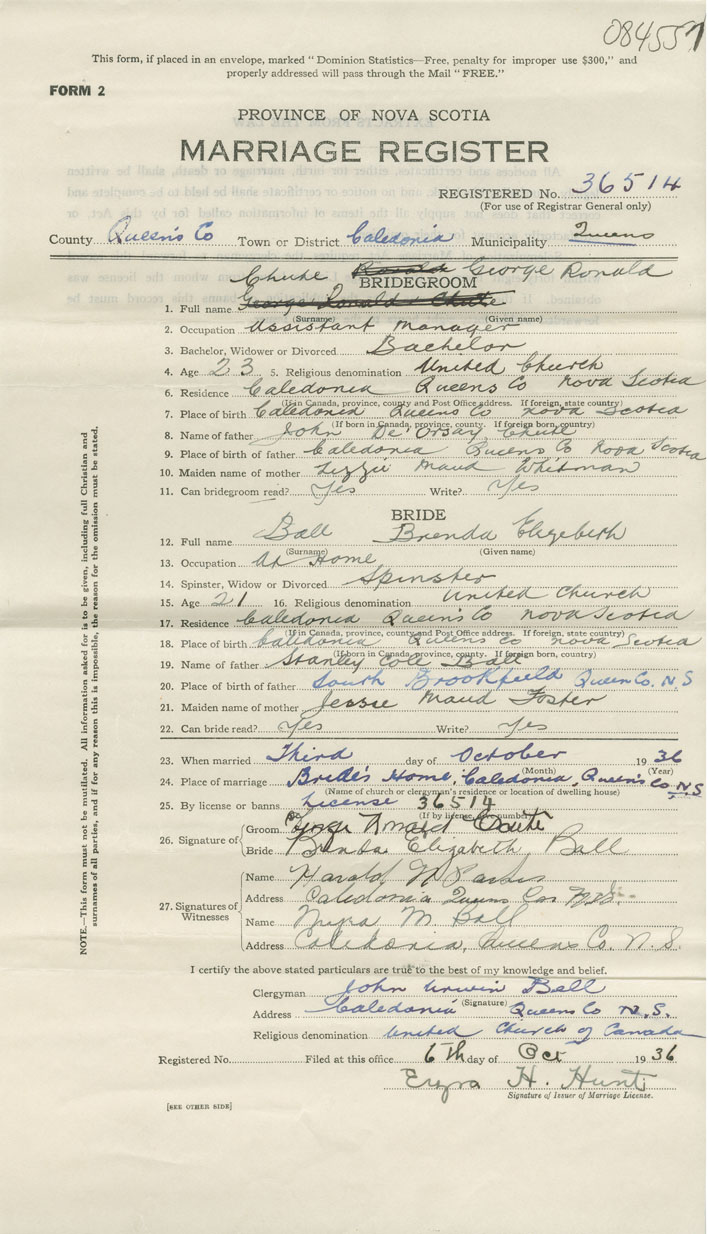 084557
This form, if placed in an envelope, marked "Dominion Statistics—Free, penalty for improper use $300," and
properly addressed will pass through the Mail "FREE."
FORM 2
PROVINCE OF NOVA SCOTIA
MARRIAGE REGISTER
REGISTERED No. 36514
(For use of Registrar General only)
County Queen's Co Town or District Caledonia Municipality Queens
Chute Ronald George Ronald
BRIDEGROOM
1. Full name George Ronald Chute
(Surname) (Given name)
2. Occupation Assistant Manager
3. Bachelor, Widower or Divorced Bachelor
4. Age 23 5. Religious denomination United Church
6. Residence Caledonia Queens Co Nova Scotia
(If in Canada, province, county and Post Office address. If foreign, state country)
7. Place of birth Caledonia Queens Co Nova Scotia
(If born in Canada, province, county. If foreign born, country)
8. Name of father John De'Orsay Chute
9. Place of birth of father Caledonia Queens Co Nova Scotia
10. Maiden name of mother Lizzie Maud Whitman
11. Can bridegroom read? Yes Write? Yes
BRIDE
12. Full name Ball Brenda Elizebeth
(Surname) (Given name)
13. Occupation At Home
14. Spinster, Widow or Divorced Spinster
15. Age 21 16. Religious denomination United Church
17. Residence Caledonia Queen's Co Nova Scotia
(If in Canada, province, county and Post Office address. If foreign, state country)
18. Place of birth Caledonia Queens Co Nova Scotia
(If born in Canada, province, county. If foreign born, country)
19. Name of father Stanley Cole Ball
20. Place of birth of father South Brookfield Queen Co. N.S
21. Maiden name of mother Jessie Maud Foster
22. Can bride read? Yes Write? Yes
23. When married Third day of October 1936
(Month) (Year)
24. Place of marriage Bride's Home, Caledonia, Queen's Co N.S
(Name of church or clergymen's residence or location of dwelling house)
25. By license or banns License 36514
(If by license, give number)
26. Signature of
Groom George Ronald Chute
Bride Brenda Elizabeth Ball
27. Signatures of Witnesses
Name Harold N
Address Caledonia Queens Co N.S.
Name Myra M. Ball
Address Caledonia, Queens Co. N.S.
I certify the above stated particulars are true to the best of my knowledge and belief.
Clergyman John Unwin Ball
(Signature)
Address Caledonia Queens Co N.S.
Religious denomination United Church of Canada
Registered No. Filed at this office 6th day of Oct 1936
Ezra H. Hunt
Signature of Issuer of Marriage License.
[SEE OTHER SIDE]
NOTE.—This form must not be mutilated. All information asked for is to be given, including full Christian and
surnames of all parties, and if for any reason this is impossible, the reason for the omission must be stated.